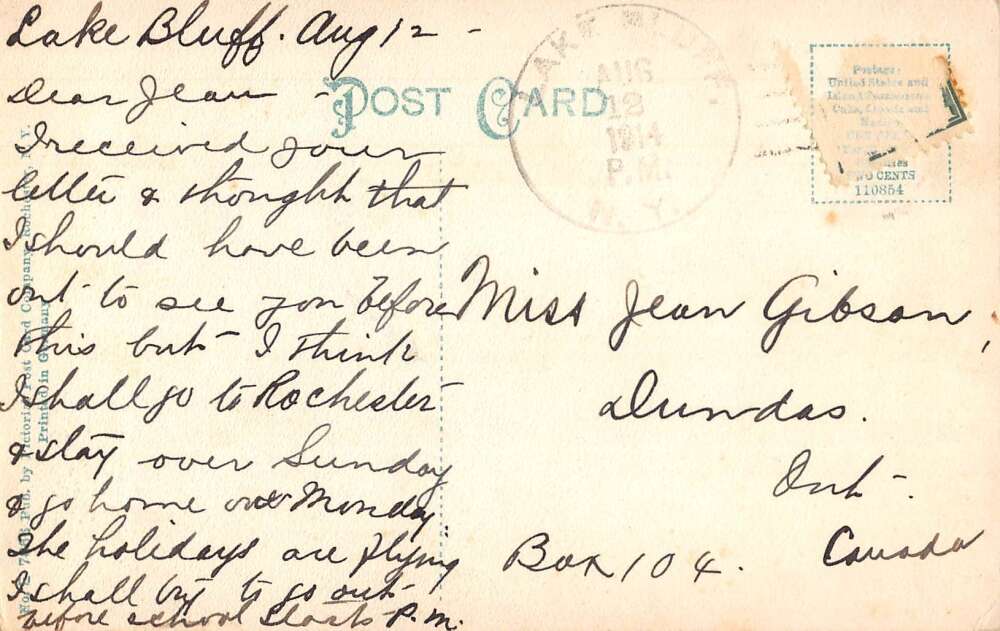 Lake Bluff. Aug 12 -
Dear Jean -
I received your
letter & thought that
I should have been
out to see you before
this but I think
I shall go to Rochester
& stay over Sunday
& go home on Monday.
The holidays are flying
I shall try to go out
before school starts P.M.
POST CARD
LAKE BLUFF.
AUG
12
1914
P.M.
N.Y.
Postage:
United States and
Island Possessions
Cuba, Canada and
Mexico
ONE CENT
TWO CENTS
110854
Miss Jean Gibson,
Dundas.
Ont-.
Canada
Box 104.
Pub. by Victoria Post Card Company, Rochester, N.Y.
Printed in Germany